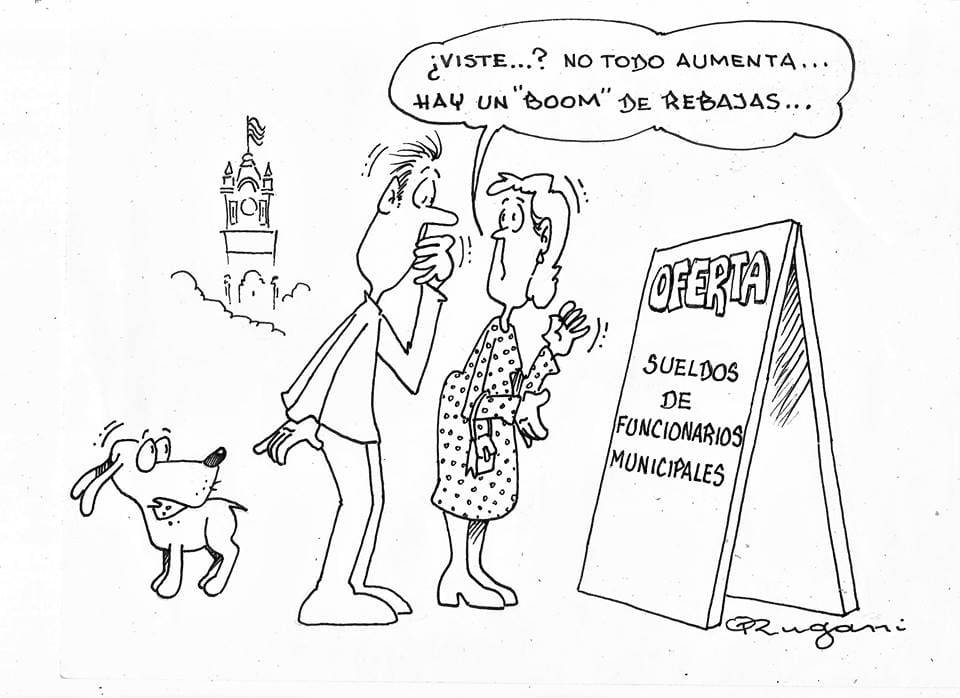 ¿VISTE...? NO TODO AUMENTA...
HAY UN "BOOM" DE REBAJAS...
OFERTA
SUELDOS
DE
FUNCIONARIOS
MUNICIPALES
Rugani